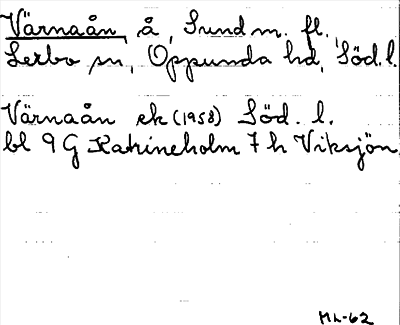 Värnaån, å, Sund m. fl.,
Lerbo sn, Oppunda hd, Söd. l.
Värnaån ek (1958) Söd. l.
bl 9 G Katrineholm 7 h Viksjön
ML-62